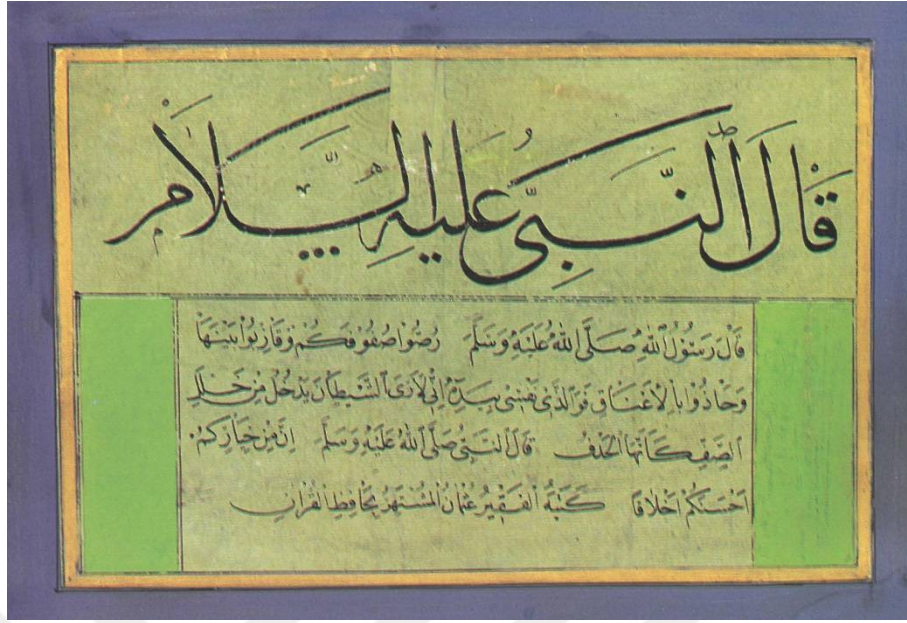 قَالَ ٱلنَّبِىُّ عَلَيْهِ ٱلسَّلَامُ
قَالَ رَسُولُ ٱللّٰهِ صَلَّى ٱللّٰهُ عَلَيْهِ وَسَلَّمَ رُصُّوا صُفُوفَكُمْ وَقَارِبُوا بَيْنَهَا
وَحَاذُوا بِالْاَعْنَاقِ فَوَالَّذِى نَفْسِى بِيَدِهِ اِنِّى لَاَرَى ٱلشَّيْطَانَ يَدْخُلُ مِنْ خَلَلِ
ٱلصَّفِّ كَاَنَّهَا ٱلْحَذَفُ قَالَ ٱلنَّبِىُّ صَلَّى ٱللّٰهُ عَلَيْهِ وَسَلَّمَ اِنَّ مِنْ خِيَارِكُمْ
اَحْسَنَكُمْ اَخْلَاقًا كَتَبَهُ ٱلْفَقِيرُ عُثْمَانُ ٱلْمُشْتَهِرُ بِحَافِظِ ٱلْقُرْاٰنِ